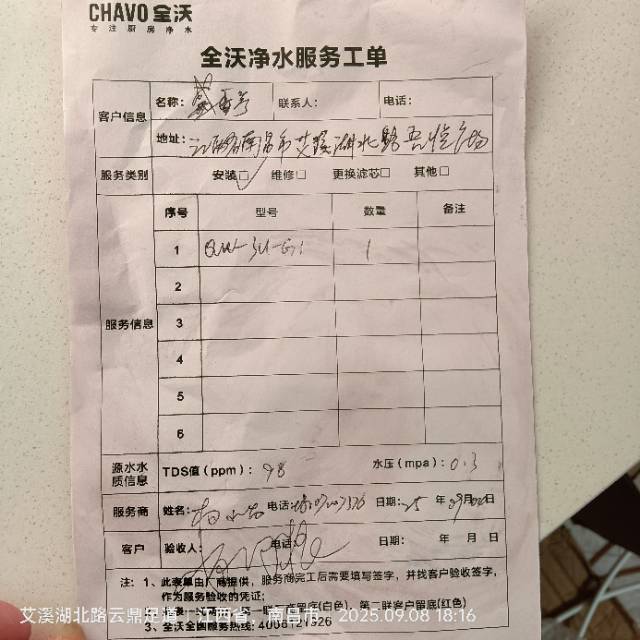 CHAVO 全沃
专注厨房净水
全沃净水服务工单
客户信息 名称： 联系人： 电话：
地址：江西省南昌市艾溪湖北路 广场
服务类别 安装□ 维修□ 更换滤芯□ 其他□
服务信息 序号 型号 数量 备注
1 1
2
3
4
5
6
源水水质信息 TDS值（ppm）：98 水压（mpa）：0.3
服务商 姓名： 电话： 日期：25 年 09月 日
客户 验收人： 电话： 日期： 年 月 日
注：1、此表单由厂商提供，服务商完工后需要填写签字，并找客户验收签字，
作为服务验收的凭证；
联 留底(白色)，第二联客户留底(红色)
3、全沃全国服务热线：
艾溪湖北路云鼎足道 | 江西省，南昌市 | 2025.09.08 18:16